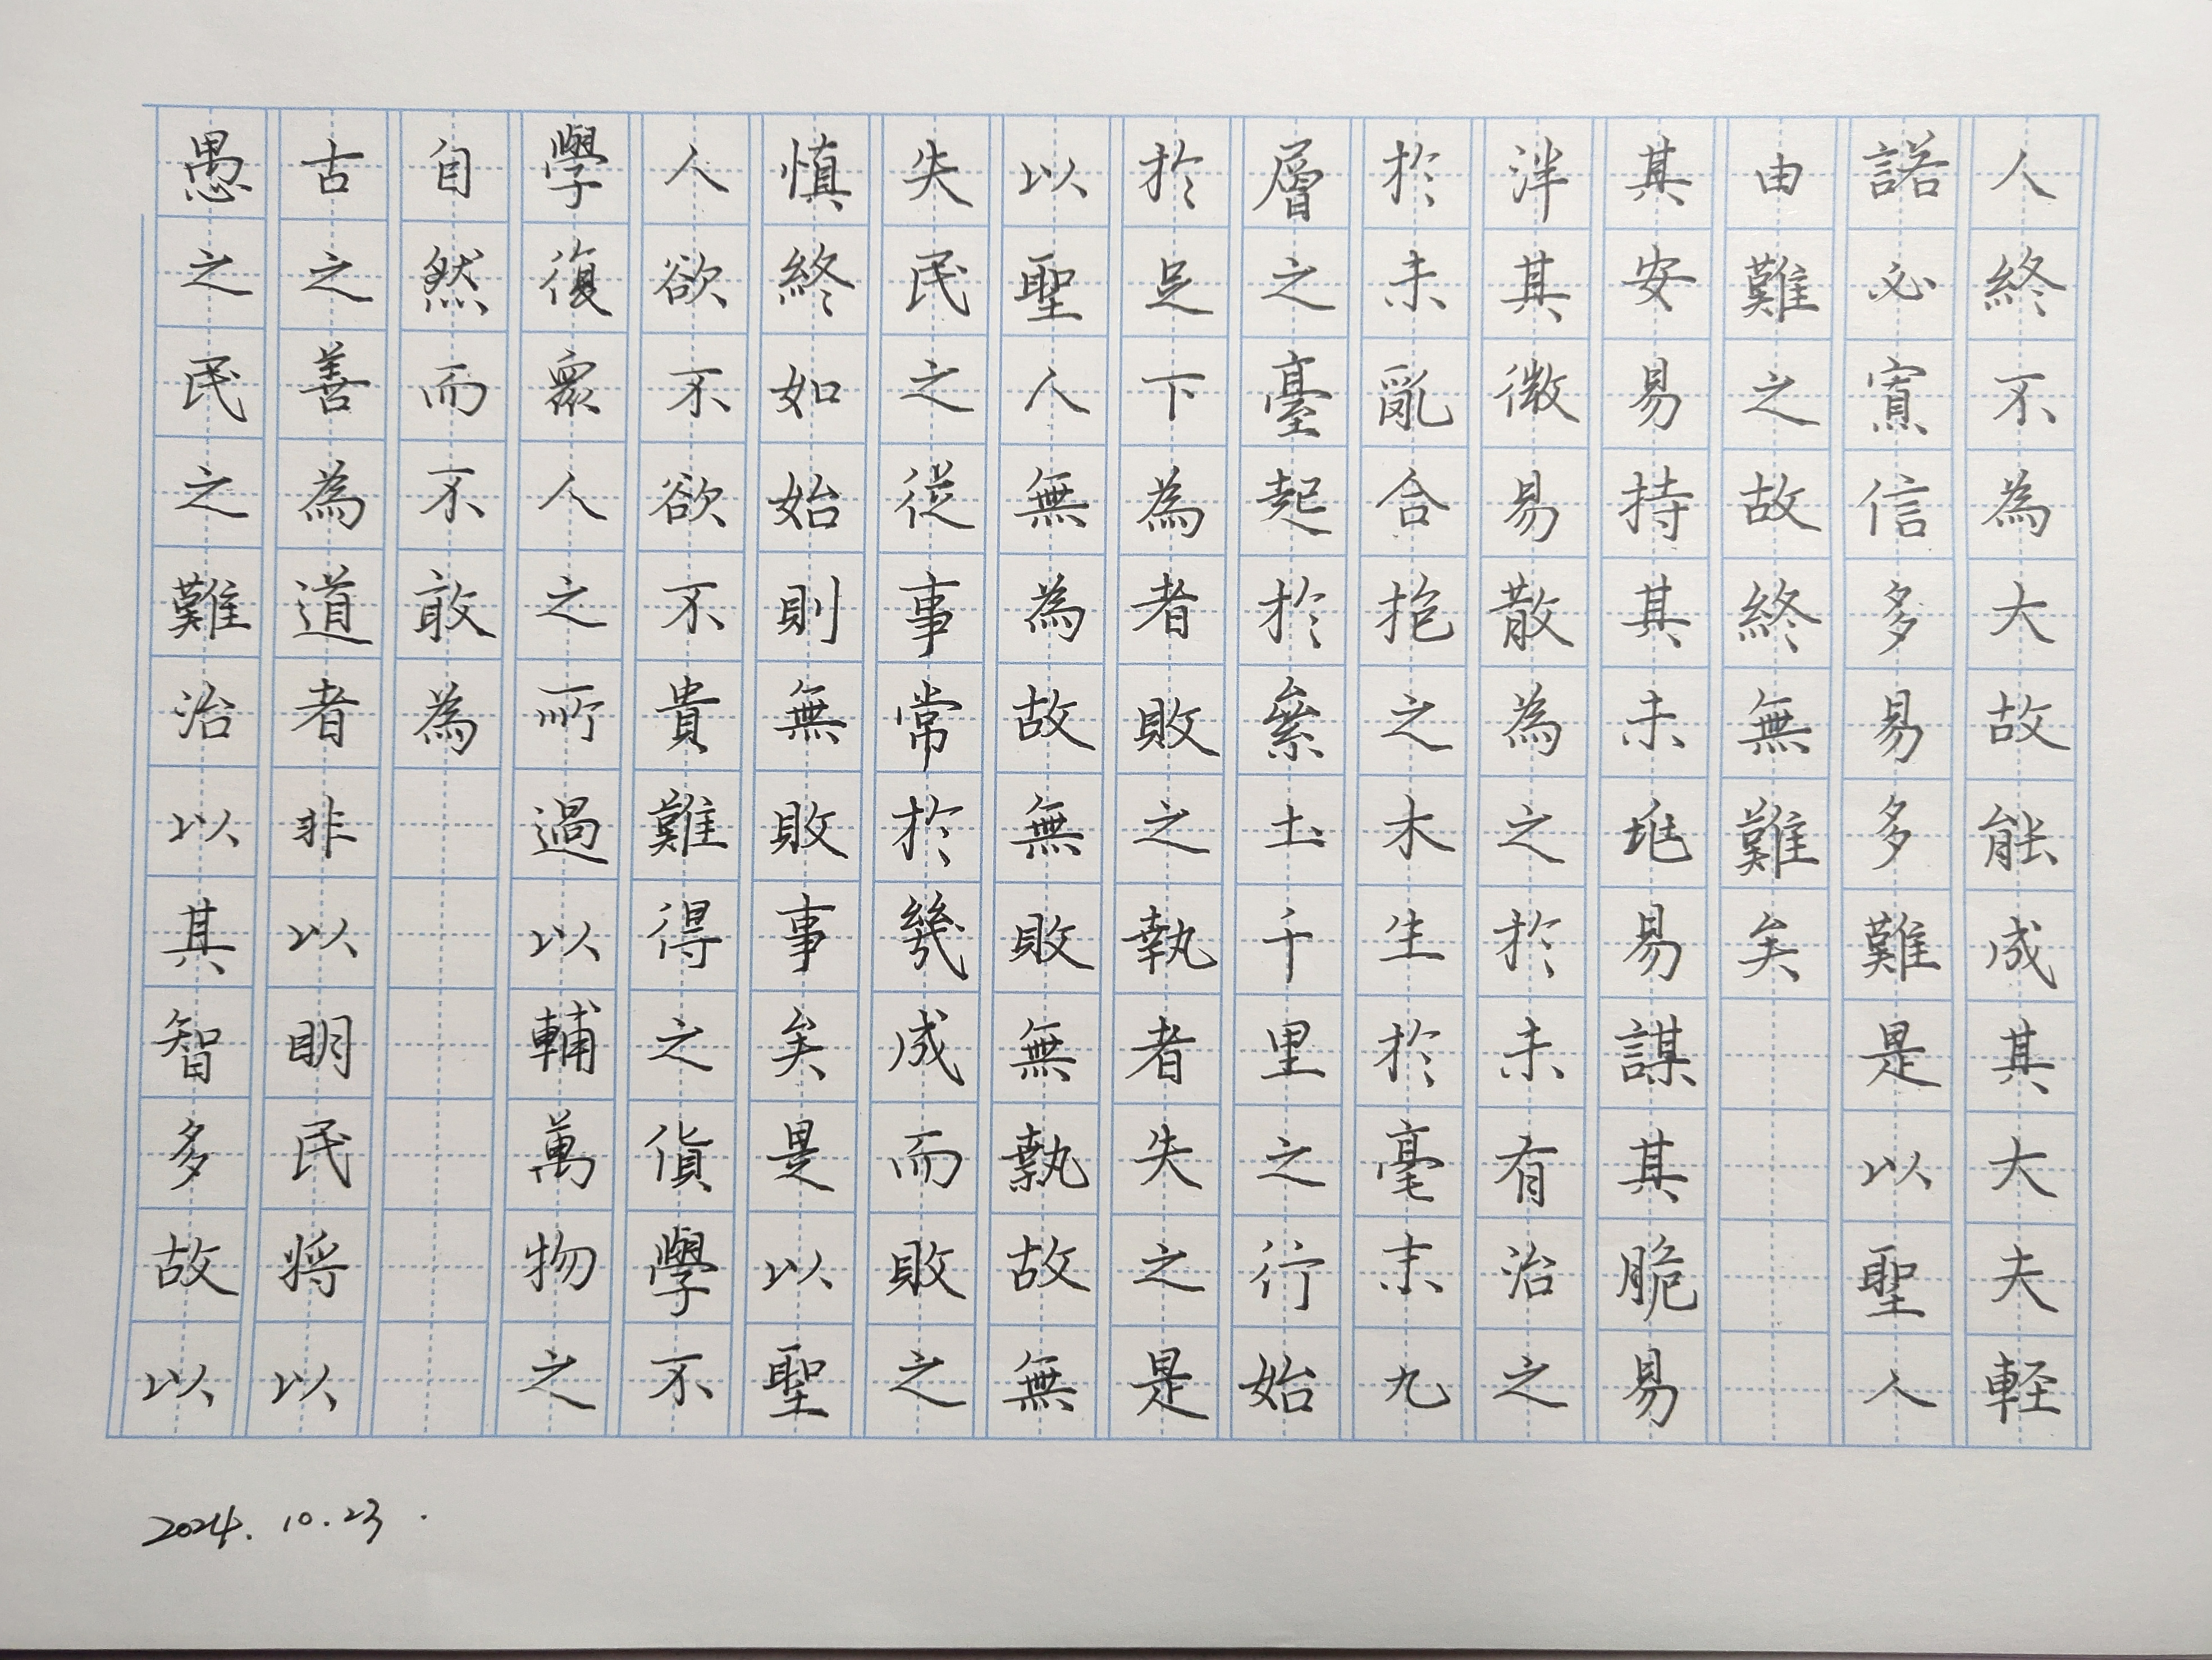 人終不為大故能成其大夫軽
諾必寡信多易多難是以聖人
由難之故終無難矣
其安易持其未兆易謀其脆易
泮其微易散為之於未有治之
於未亂合抱之木生於毫末九
層之臺起於絫土千里之行始
於足下為者敗之執者失之是
以聖人無為故無敗無執故無
失民之從事常於幾成而敗之
慎終如始則無敗事矣是以聖
人欲不欲不貴難得之貨學不
學復眾人之所過以輔萬物之
自然而不敢為
古之善為道者非以明民将以
愚之民之難治以其智多故以
2024.10.23.